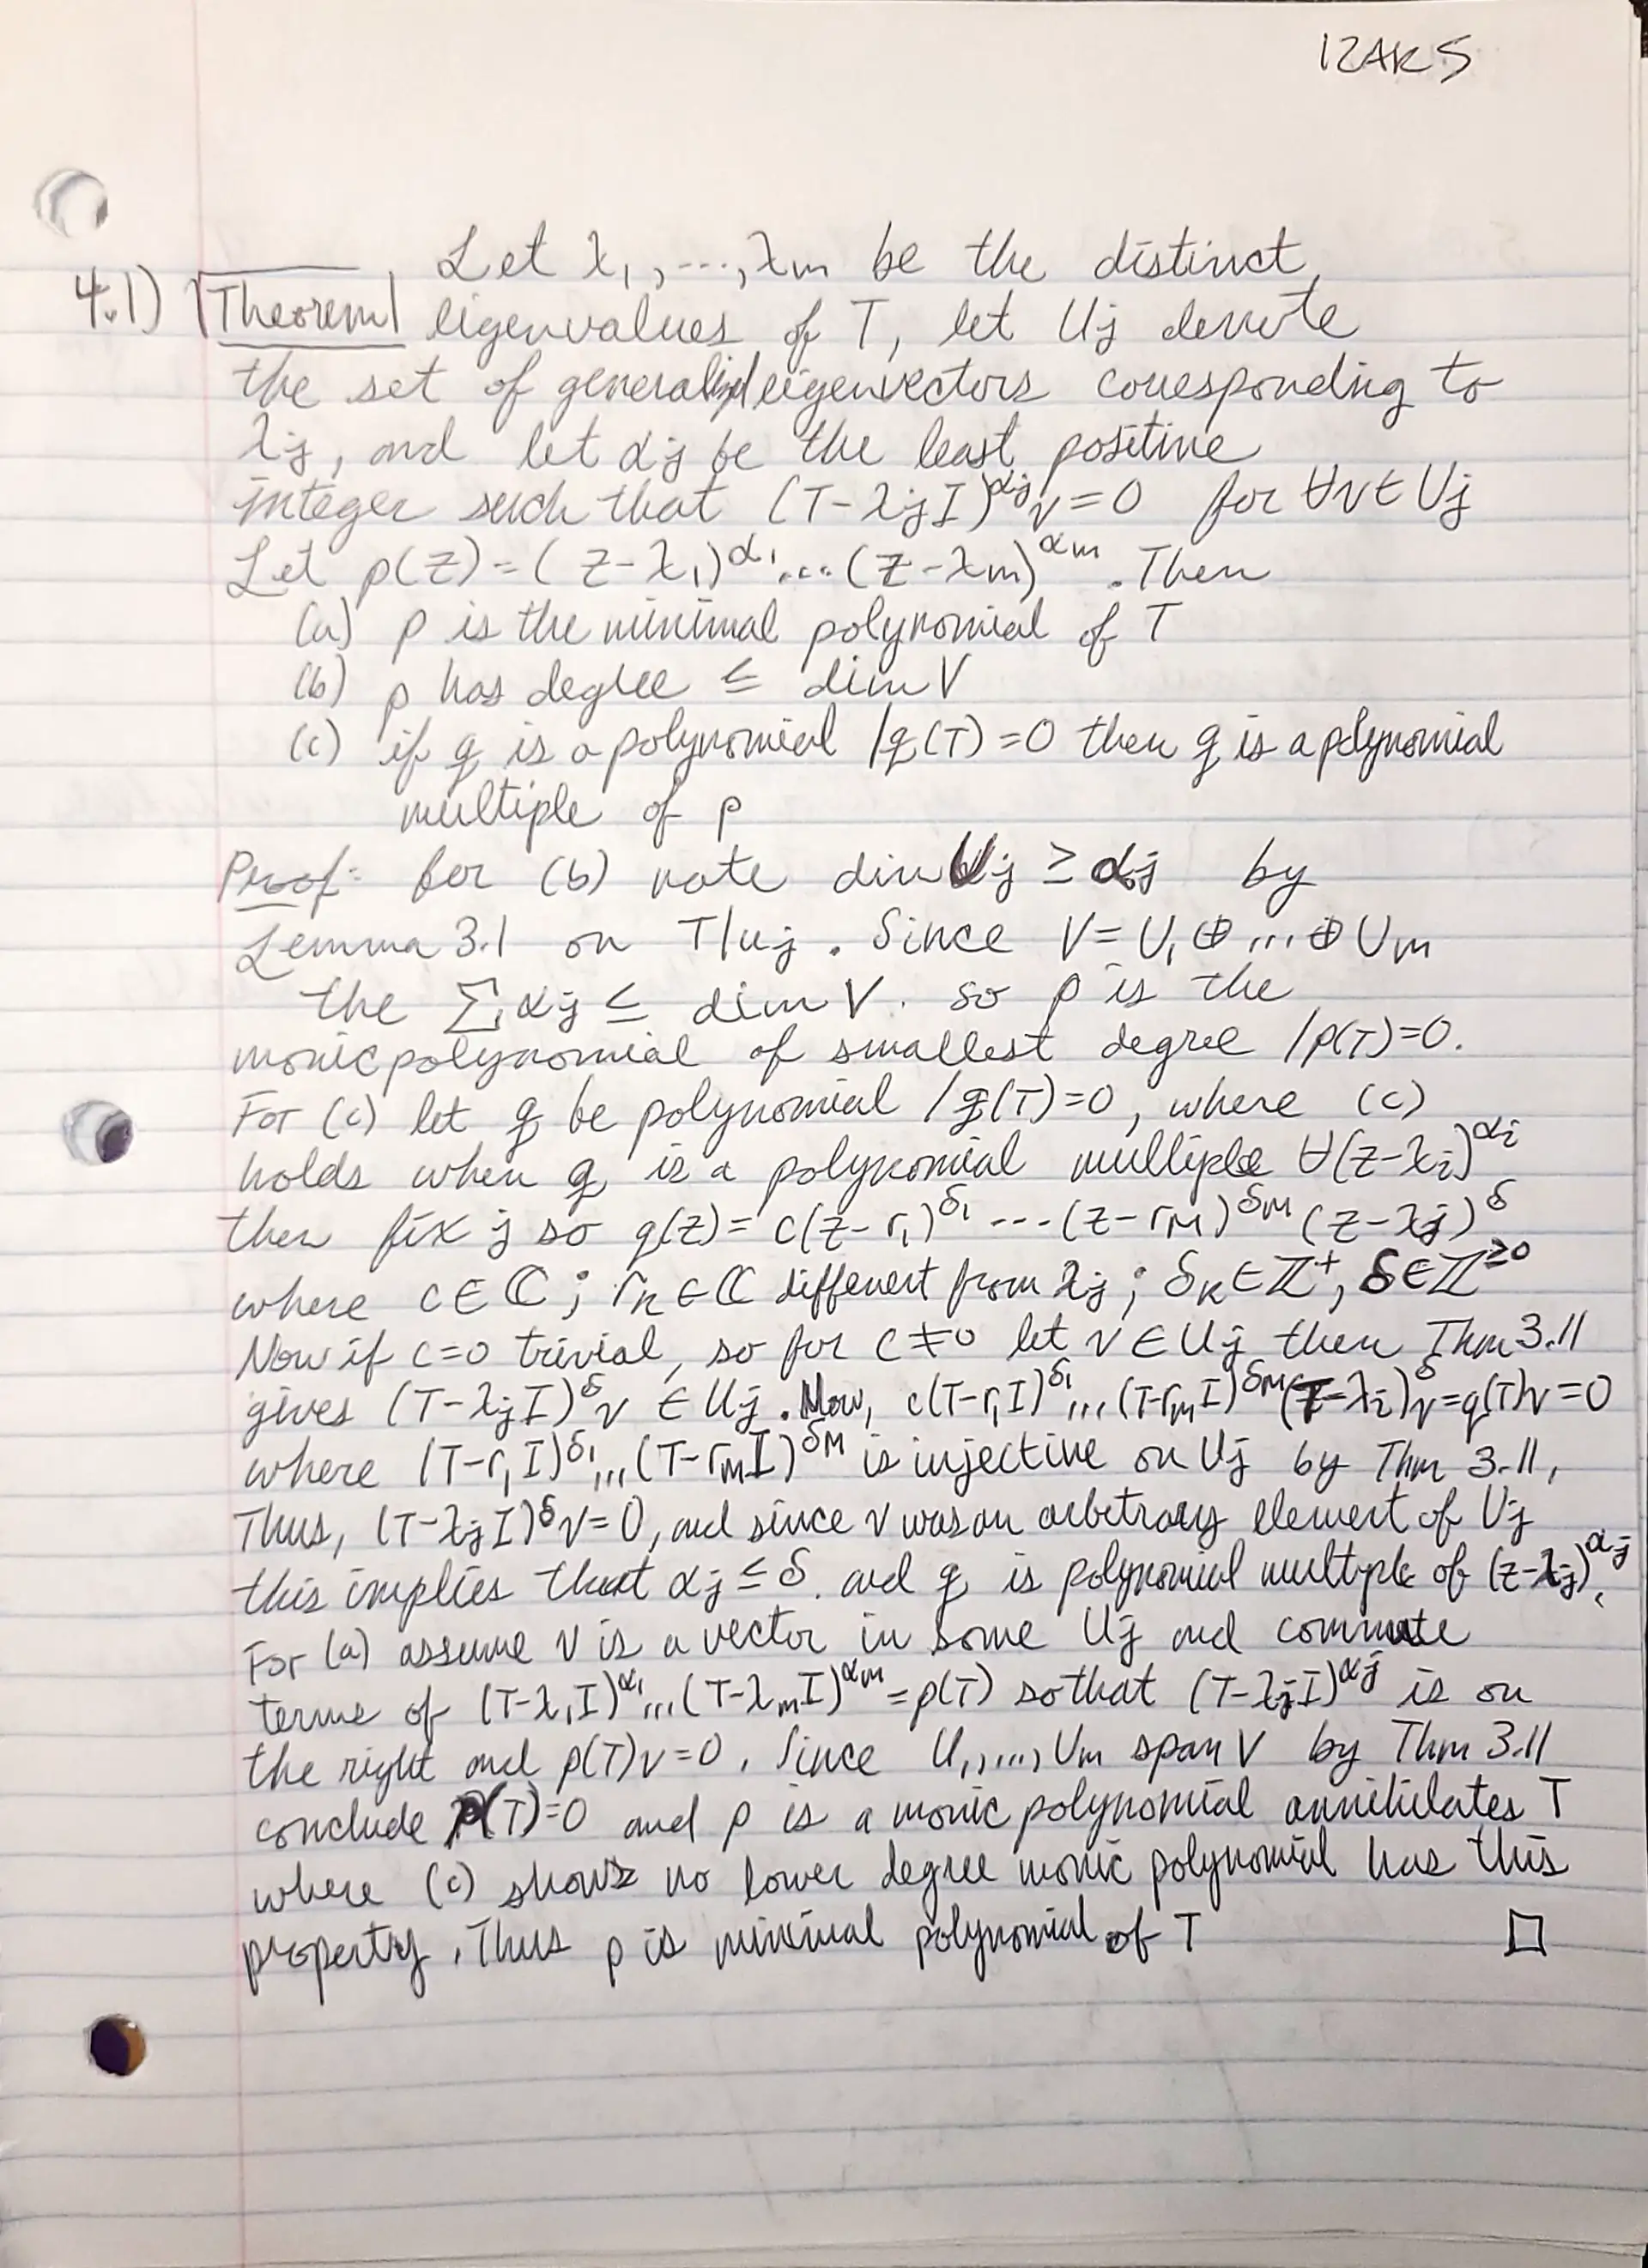 12AR5
Let λ₁,...,λm be the distinct
4.1) Theorem eigenvalues of T, let Uj denote
the set of generalized eigenvectors corresponding to
λj, and let αj be the least positive
integer such that (T-λjI)^αj v=0 for ∀v∈Uj
Let p(z)=(z-λ₁)^α₁....(z-λm)^αm. Then
(a) p is the minimal polynomial of T
(b) p has degree ≤ dim V
(c) if q is a polynomial /q(T)=0 then q is a polynomial
multiple of p
Proof: for (b) note dim Uj ≥ αj by
Lemma 3.1 on T|uj. Since V=U₁⊕...⊕Um
the Σ αj ≤ dim V. so p is the
monic polynomial of smallest degree /p(T)=0.
For (c) let q be polynomial /q(T)=0, where (c)
holds when q is a polynomial multiple ∀(z-λi)^αi
then fix j so q(z)=c(z-r₁)^δ₁---(z-rM)^δM (z-λj)^δ
where c∈ℂ; rk∈ℂ different from λj; δk∈ℤ⁺, δ∈ℤ^≥0
Now if c=0 trivial, so for c≠0 let v∈Uj then Thm 3.11
gives (T-λjI)^δ v ∈Uj. Now, c(T-r₁I)^δ₁...(T-rmI)^δM(T-λi)^δ v=q(T)v=0
where (T-r₁I)^δ₁...(T-rmI)^δM is injective on Uj by Thm 3.11,
Thus, (T-λjI)^δ v=0, and since v was an arbetrary element of Uj
this implies that αj≤δ. and q is polynomial multple of (z-λj)^αj.
For (a) assume v is a vector in some Uj and commute
terms of (T-λ₁I)^α₁...(T-λmI)^αm=p(T) so that (T-λjI)^αj is on
the right and p(T)v=0. Since U₁,...,Um span V by Thm 3.11
conclude p(T)=0 and p is a monic polynomial annihilates T
where (c) shows no lower degree monic polynomial has this
property. Thus p is minimal polynomial of T □